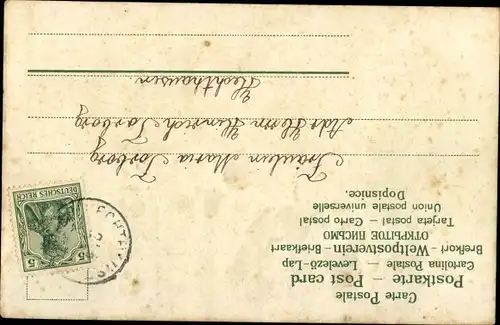 Carte Postale
Postkarte — Post card
Cartolina Postale — Levelező-Lap
Brefkort — Weltpostverein — Briefkaart
ОТКРЫТОЕ ПИСЬМО
Tarjeta postal — Carto postal
Union postale universelle
Dopisnice.
Fräulein Maria Torborg
Adr Herrn Heinrich Torborg
Hechthausen
DEUTSCHES REICH
5 5
HECHTHAUSEN